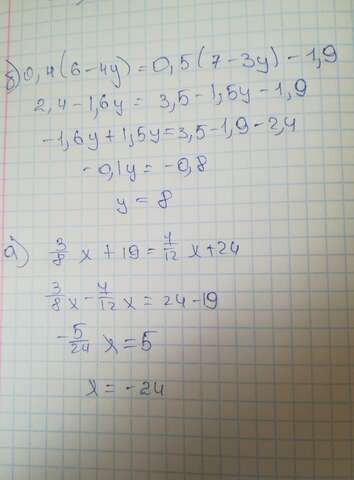 б) 0,4(6-4y)=0,5(7-3y)-1,9
2,4-1,6y= 3,5-1,5y-1,9
-1,6y+1,5y=3,5-1,9-2,4
-0,1y=-0,8
y=8
а) 3/8 x +19= 7/12 x+24
3/8 x - 7/12 x = 24-19
-5/24 x=5
x=-24